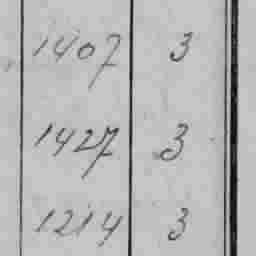 1407 3
1427 3
1214 3